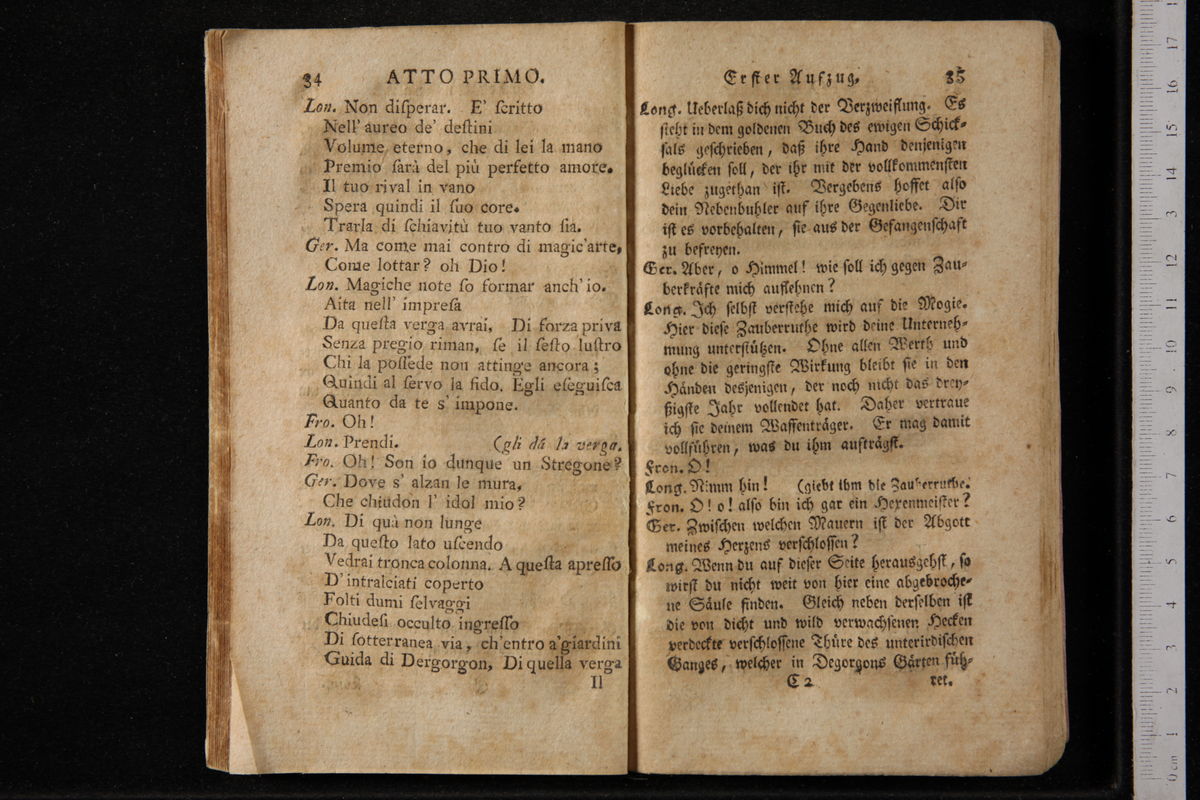 34 ATTO PRIMO.
Lon. Non diſperar. E' ſcritto
Nell' aureo de' deſtini
Volume eterno, che di lei la mano
Premio ſarà del più perfetto amore.
Il tuo rival in vano
Spera quindi il ſuo core.
Trarla di ſchiavitù tuo vanto ſia.
Ger. Ma come mai contro di magic'arte,
Come lottar? oh Dio!
Lon. Magiche note ſo formar anch' io.
Aita nell' impreſa
Da queſta verga avrai, Di forza priva
Senza pregio riman, ſe il ſeſto luſtro
Chi la poſſede non attinge ancora;
Quindi al ſervo la fido. Egli eſeguiſca
Quanto da te s' impone.
Fro. Oh!
Lon. Prendi. (gli dà la verga.
Fro. Oh! Son io dunque un Stregone?
Ger. Dove s' alzan le mura,
Che chiudon l' idol mio?
Lon. Di quà non lunge
Da queſto lato uſcendo
Vedrai tronca colonna. A queſta apreſſo
D' intralciati coperto
Folti dumi ſelvaggi
Chiudeſi occulto ingreſſo
Di ſotterranea via, ch'entro a'giardini
Guida di Dergorgon, Di quella verga
Il
Erſter Aufzug. 35
Long. Ueberlaß dich nicht der Verzweiflung. Es
ſteht in dem goldenen Buch des ewigen Schick-
ſals geſchrieben, daß ihre Hand denjenigen
beglücken ſoll, der ihr mit der vollkommenſten
Liebe zugethan iſt. Vergebens hoffet alſo
dein Nebenbuhler auf ihre Gegenliebe. Dir
iſt es vorbehalten, ſie aus der Gefangenſchaft
zu befreyen.
Ger. Aber, o Himmel! wie ſoll ich gegen Zau-
berkräfte mich auflehnen?
Long. Ich ſelbſt verſtehe mich auf die Magie.
Hier dieſe Zauberruthe wird deine Unterneh-
mung unterſtützen. Ohne allen Werth und
ohne die geringſte Wirkung bleibt ſie in den
Händen desjenigen, der noch nicht das drey-
ßigſte Jahr vollendet hat. Daher vertraue
ich ſie deinem Waffenträger. Er mag damit
vollführen, was du ihm aufträgſt.
Fron. O!
Long. Nimm hin! (giebt ihm die Zauberruthe.
Fron. O! o! alſo bin ich gar ein Hexenmeiſter?
Ger. Zwiſchen welchen Mauern iſt der Abgott
meines Herzens verſchloſſen?
Long. Wenn du auf dieſer Seite herausgehſt, ſo
wirſt du nicht weit von hier eine abgebroche-
ne Säule finden. Gleich neben derſelben iſt
die von dicht und wild verwachſenen Hecken
verdeckte verſchloſſene Thüre des unterirdiſchen
Ganges, welcher in Degorgons Gärten füh-
C 2 ret.